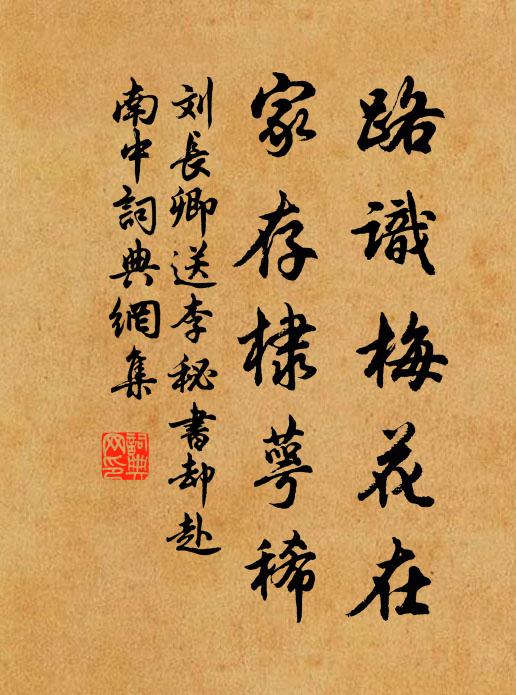 路識梅花在
家存棣萼稀
刘長卿送李秘書却赴
南中詞典網集
詞典
网印